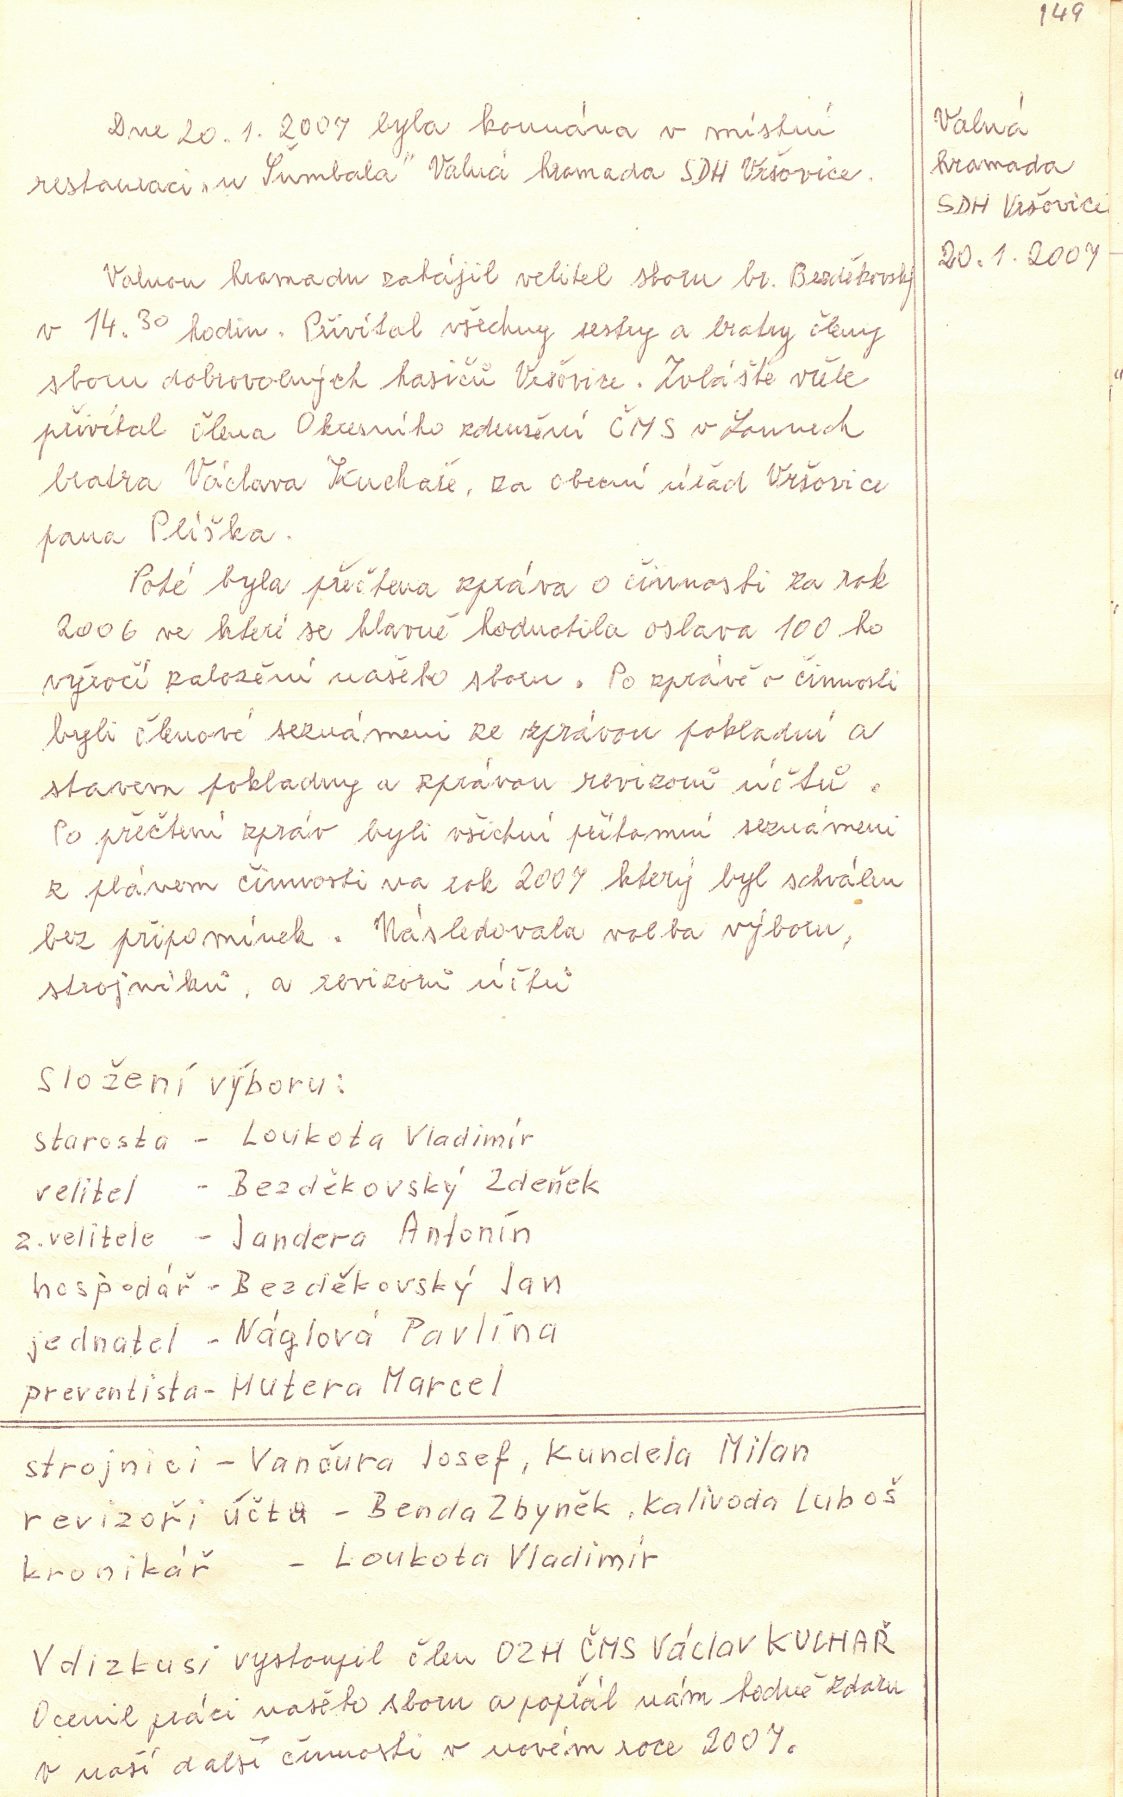 149
Dne 20.1. 2007 byla konnána v místní
restauraci „u Šumbala" Valná hromada SDH Vršovice.
Valná
hromada
SDH Vršovice
20.1.2007
Valnou hromadu zahájil velitel sboru br. Bezděkovský
v 14.30 hodin. Přivítal všechny sestry a bratry členy
sboru dobrovolných hasičů Vršovice. Zvláště vřele
přivítal člena Okresního združení ČMS v Lounech
bratra Václava Kuchaře, za obecní úřad Vršovice
pana Plíška.
Poté byla přečtena zpráva o činnosti za rok
2006 ve které se hlavně hodnotila oslava 100 ho
výročí založení našeho sboru. Po zprávě o činnosti
byli členové seznámeni ze zprávou pokladní a
stavem pokladny a zprávou revizorů účtů.
Po přečtení zpráv byli všichni přítomní seznámeni
z plánem činnosti na rok 2007 který byl schválen
bez připomínek. Následovala volba výboru,
strojníků, a revizorů účtů
Složení výboru:
starosta - Loukota Vladimír
velitel - Bezděkovský Zdeňek
z.velitele - Jandera Antonín
hospodář - Bezděkovský Jan
jednatel - Náglová Pavlína
preventista - Hutera Marcel
strojnici - Vančura Josef, Kundela Milan
revizoři účtů - Benda Zbyněk, Kalivoda Luboš
kronikář - Loukota Vladimír
V dizkusi vystoupil člen OZH ČMS Václav KUCHAŘ
Ocenil práci našeho sboru a popřál nám hodně zdaru
v naší další činnosti v novém roce 2007.